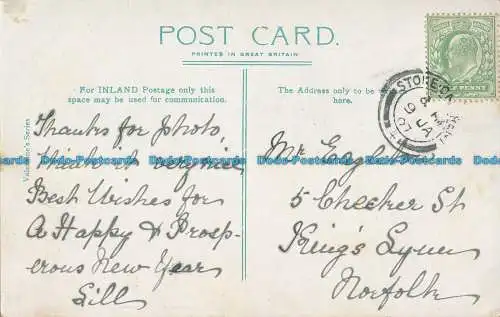 POST CARD.
PRINTED IN GREAT BRITAIN
For INLAND Postage only this
space may be used for communication.
The Address only to be
here.
Valentine's Series
Thanks for photo,
think it very nice
Best Wishes for
A Happy & Prosp-
erous New Year
Lill
Mr Eagle
5 Checker St
King's Lynn
Norfolk
STOKE
JA
07
PENNY
Postcards